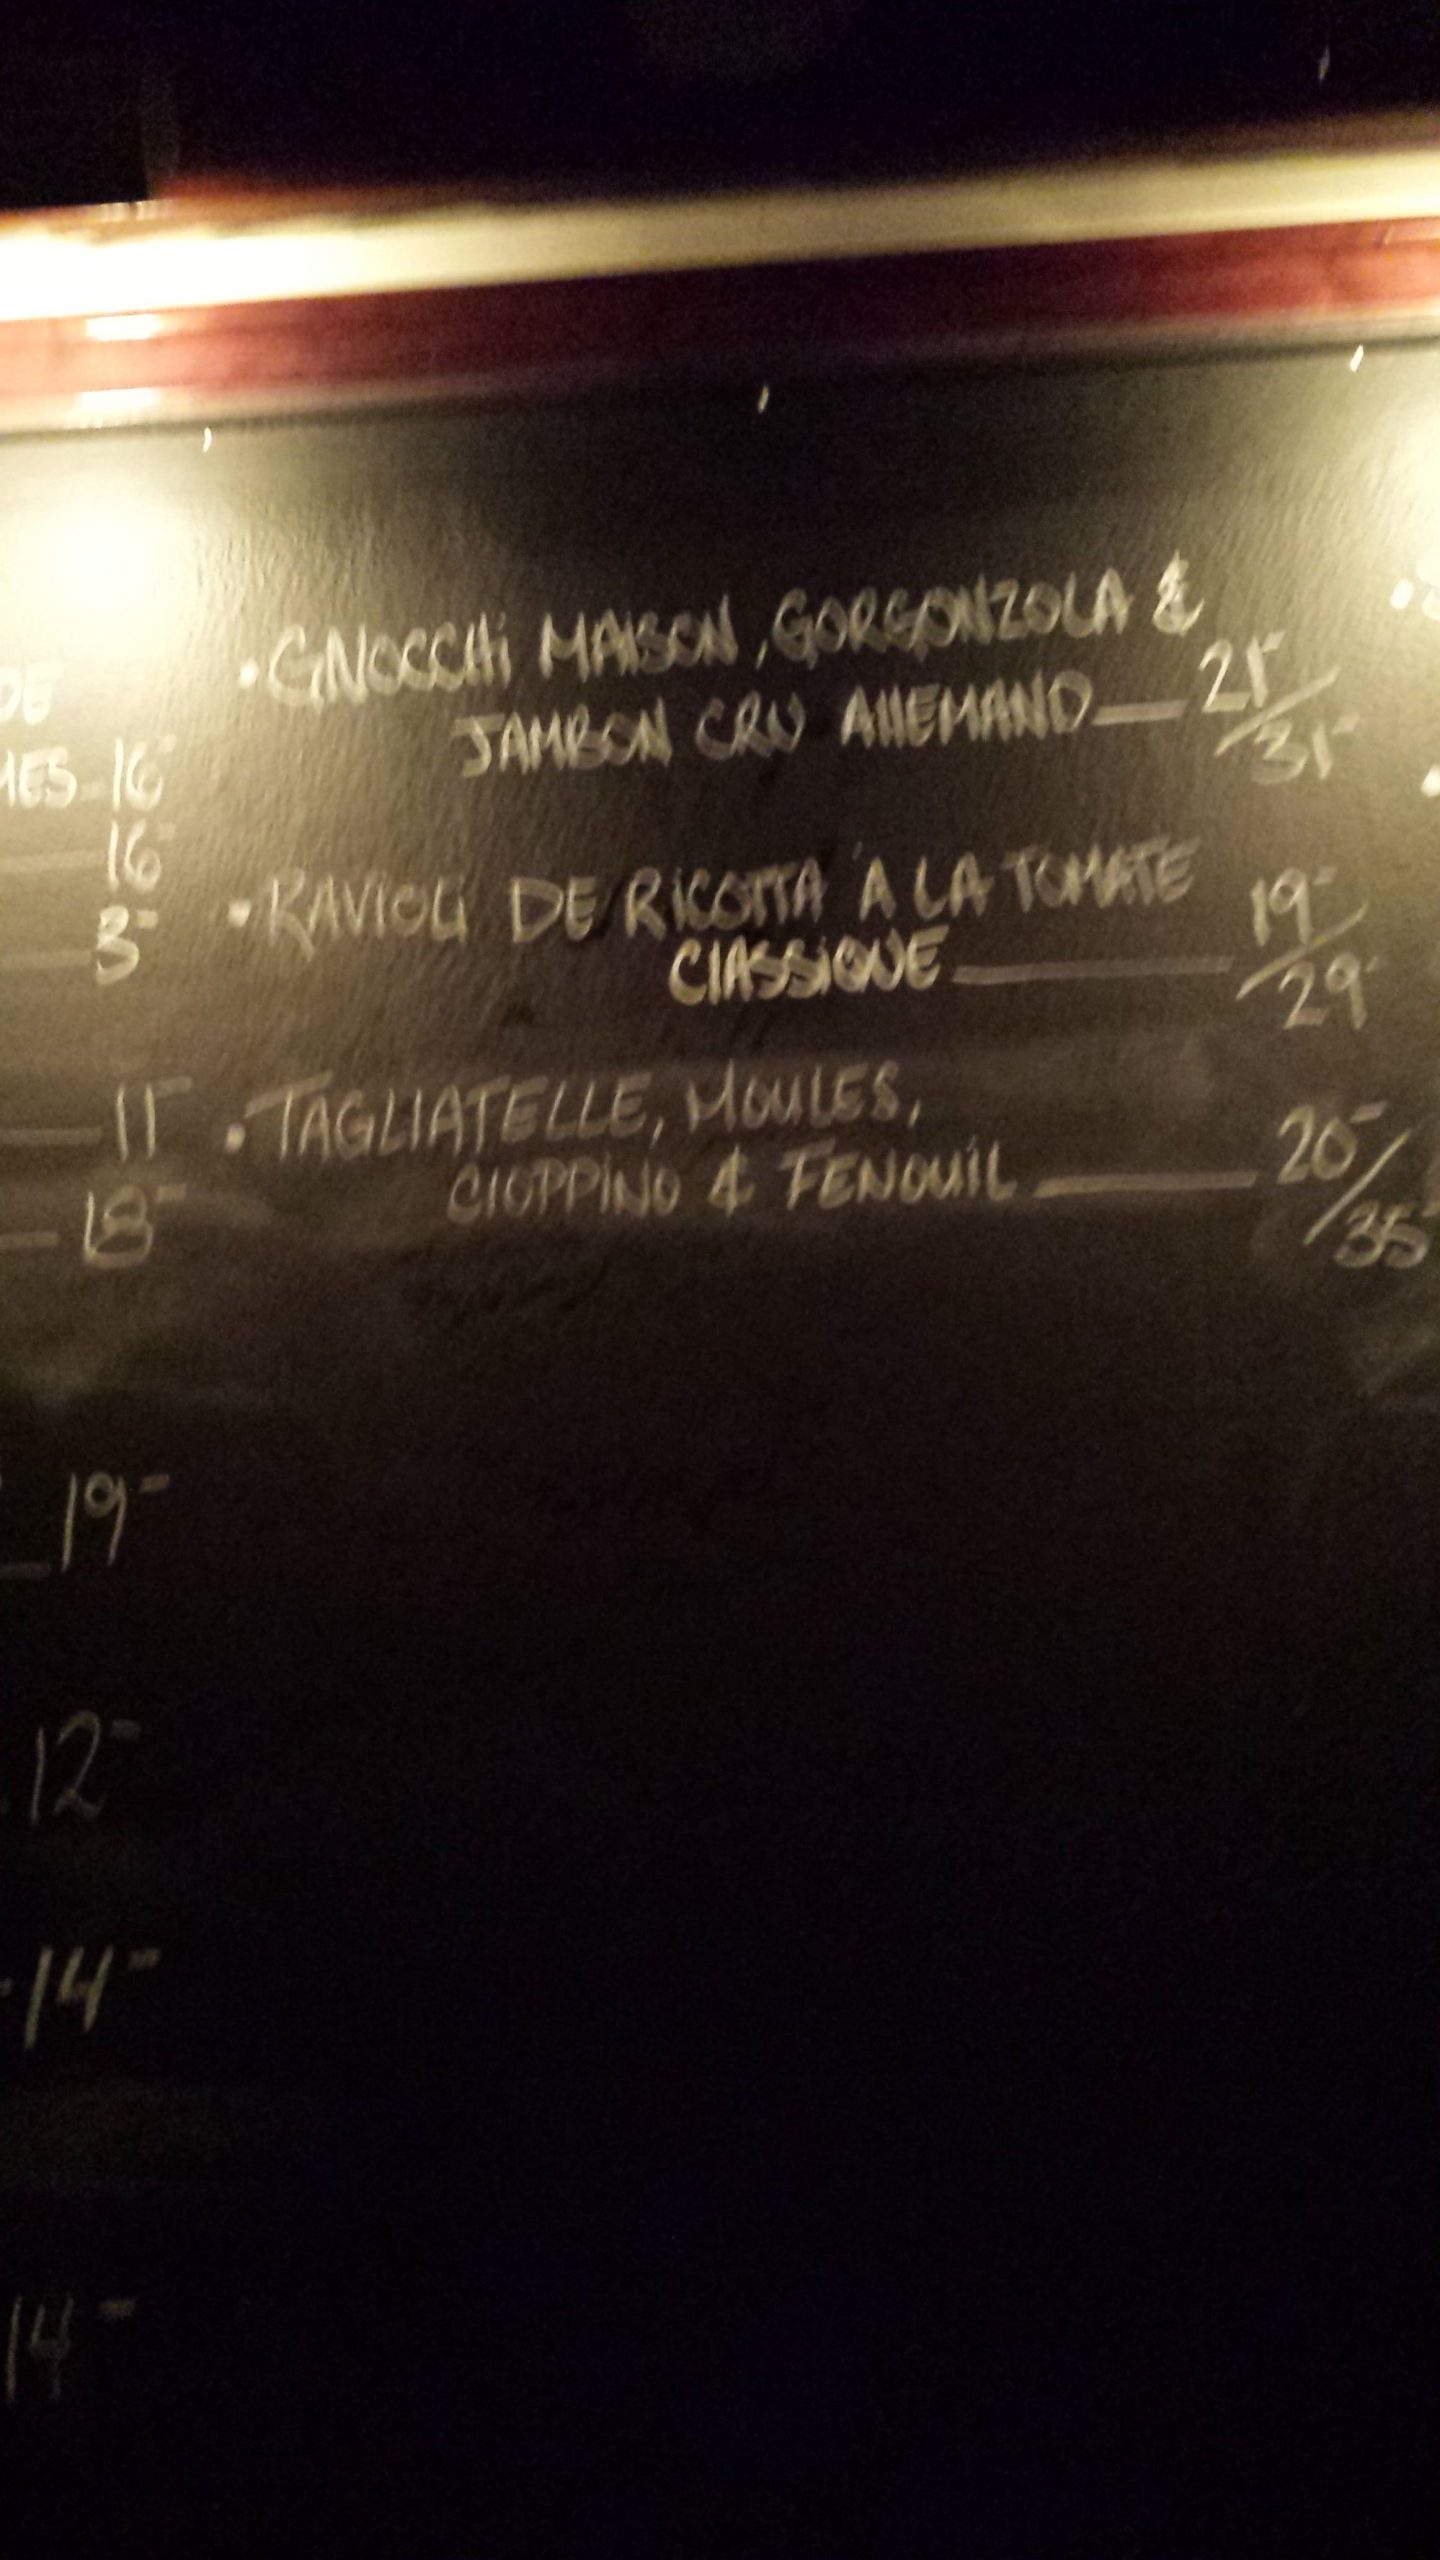 DE
16-
16-
8-
11-
18-
19-
12-
14-
14-
• GNOCCHi MAISON, GORGONZOLA &
JAMBON CRU AllEMAND — 21-/31-
• RAViOLi DE RiCOTTA À LA TOMATE
ClASSiQUE — 19-/29-
• TAGLIATELLE, MOULES,
CIOPPiNO & FENOUiL — 20-/35-